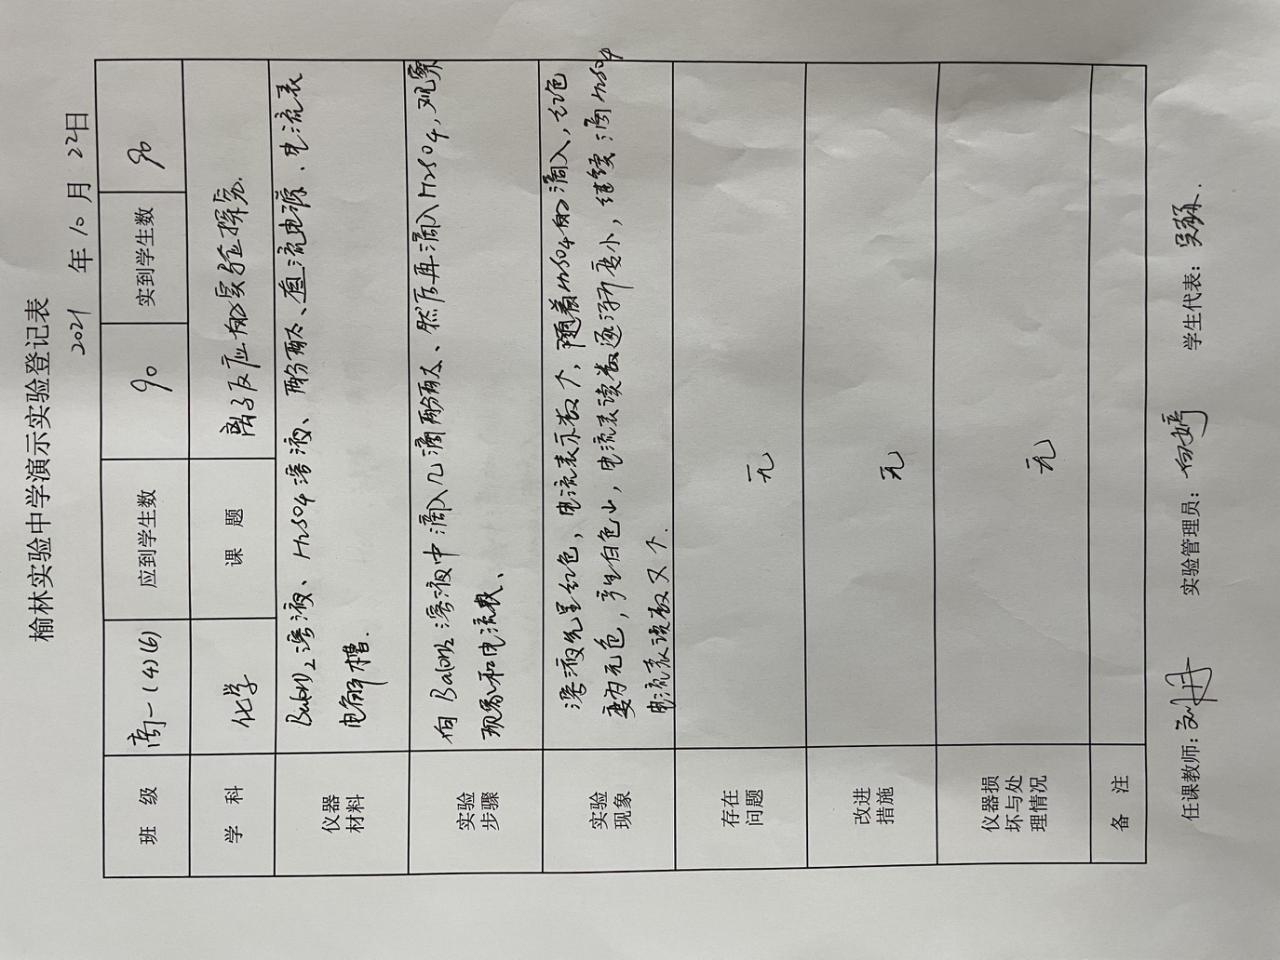 榆林实验中学演示实验登记表
2021 年 10 月 22日
班 级 高一(4)(6) 应到学生数 90 实到学生数 90
学 科 化学 课 题 离子反应的实验探究.
仪器
材料
Ba(OH)2溶液、H2SO4溶液、酚酞、直流电源、电流表
电解槽.
实验
步骤
向Ba(OH)2溶液中滴入几滴酚酞、然后再滴入H2SO4,观察
现象和电流表、
实验
现象
溶液先呈红色,电流表示数个,随着H2SO4的滴入,红色
变为无色,产生白色山,电流表读数逐渐变小,继续滴H2SO4
电流表读数又个.
存在
问题
无
改进
措施
无
仪器损
坏与处
理情况
无
备 注
任课教师: 实验管理员: 学生代表: